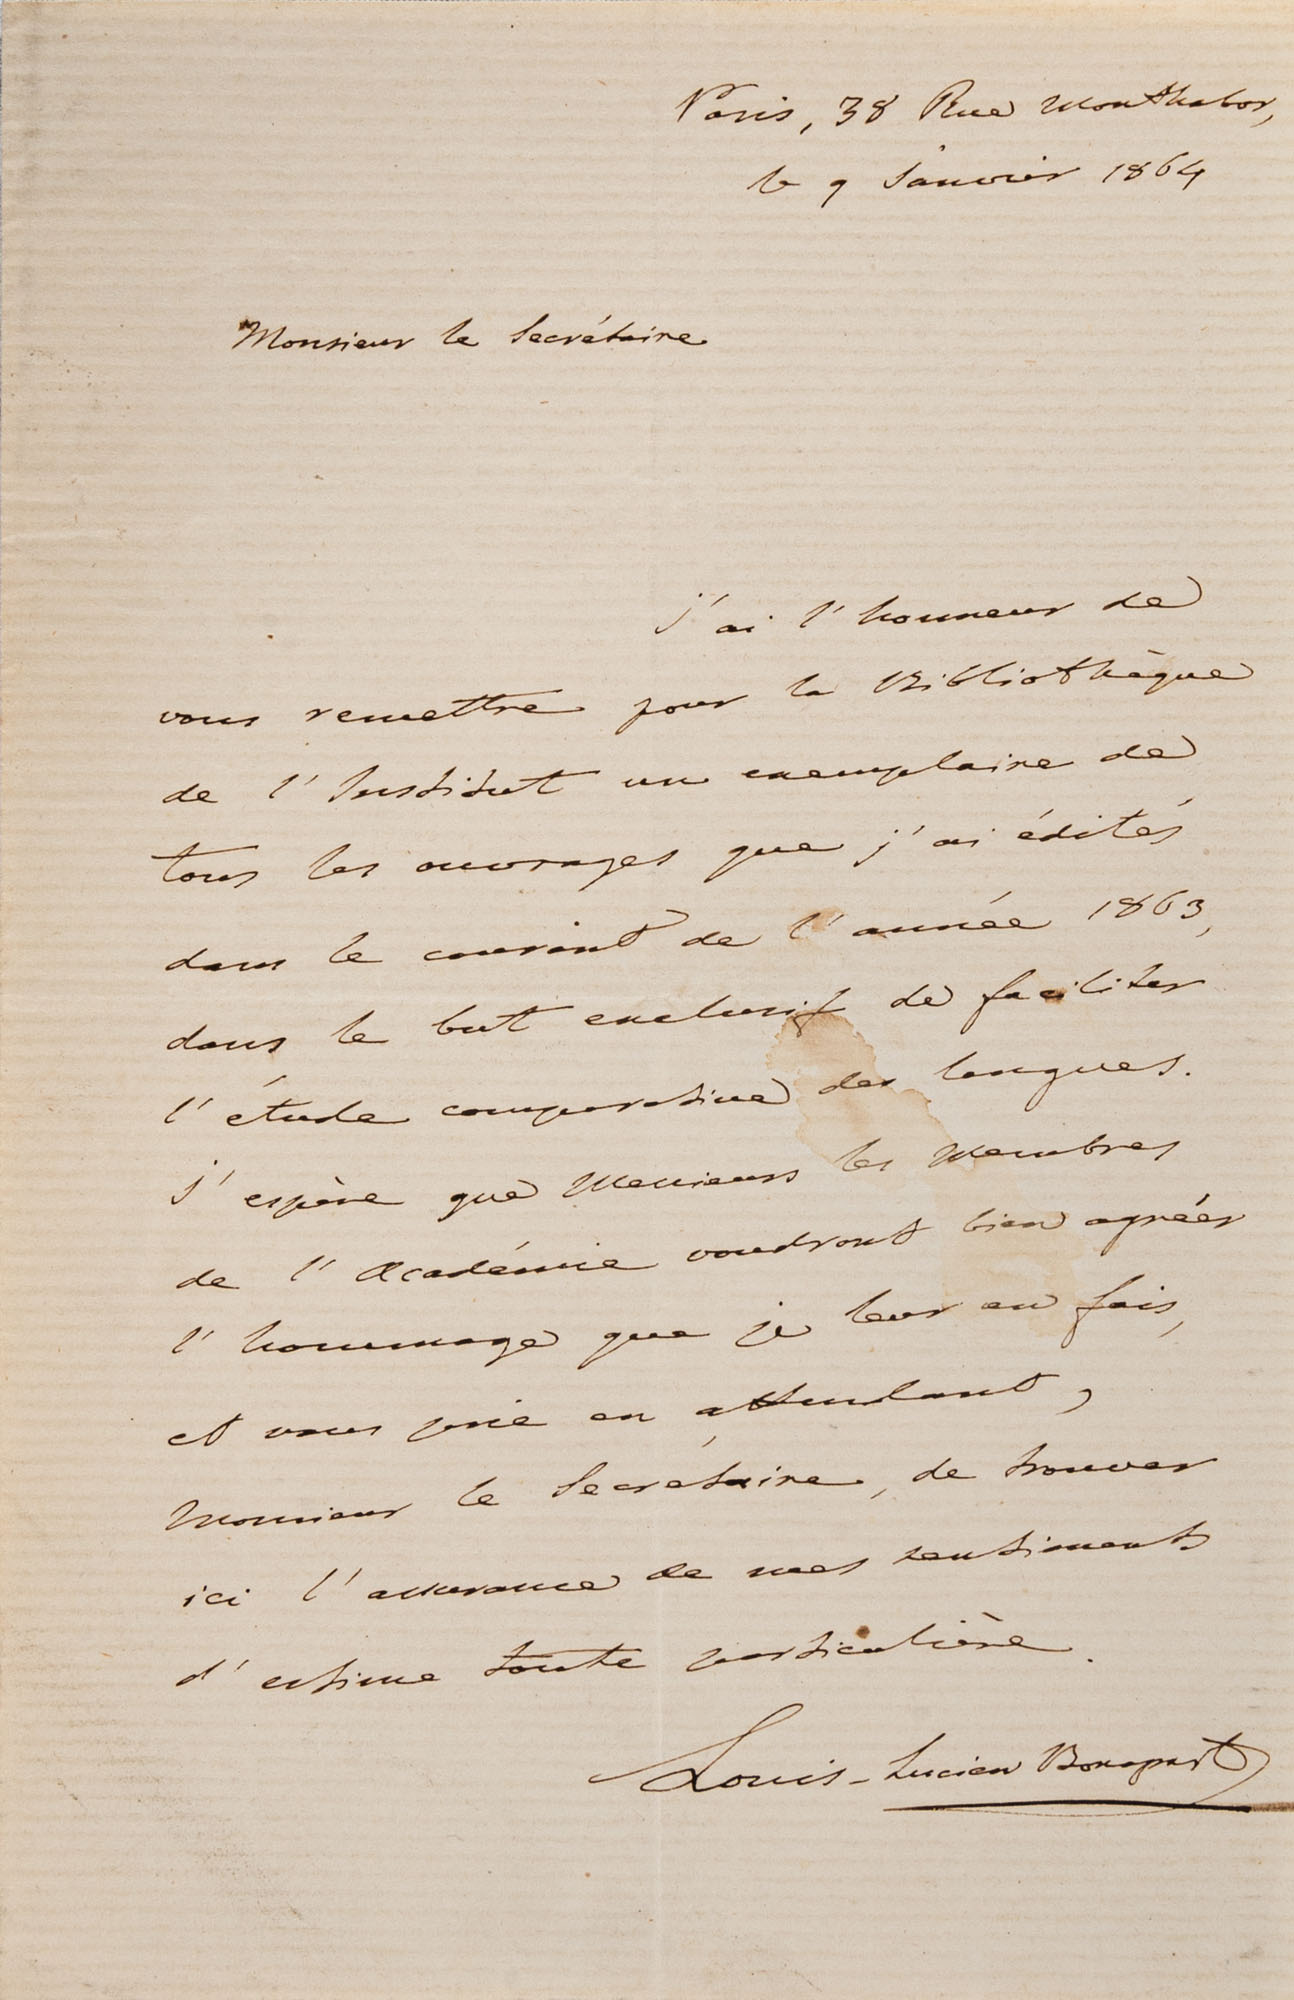 Paris, 38 Rue Monthabor,
le 9 Janvier 1864
Monsieur le Secrétaire
J'ai l'honneur de
vous remettre pour la Bibliothèque
de l'Institut un exemplaire de
tous les ouvrages que j'ai édités
dans le courant de l'année 1863,
dans le but exclusif de faciliter
l'étude comparative des langues.
J'espère que Messieurs les Membres
de l'Académie voudront bien agréer
l'hommage que je leur en fais,
et vous prie en attendant,
Monsieur le Secrétaire, de trouver
ici l'assurance de mes sentiments
d'estime toute particulière.
Louis-Lucien Bonaparte